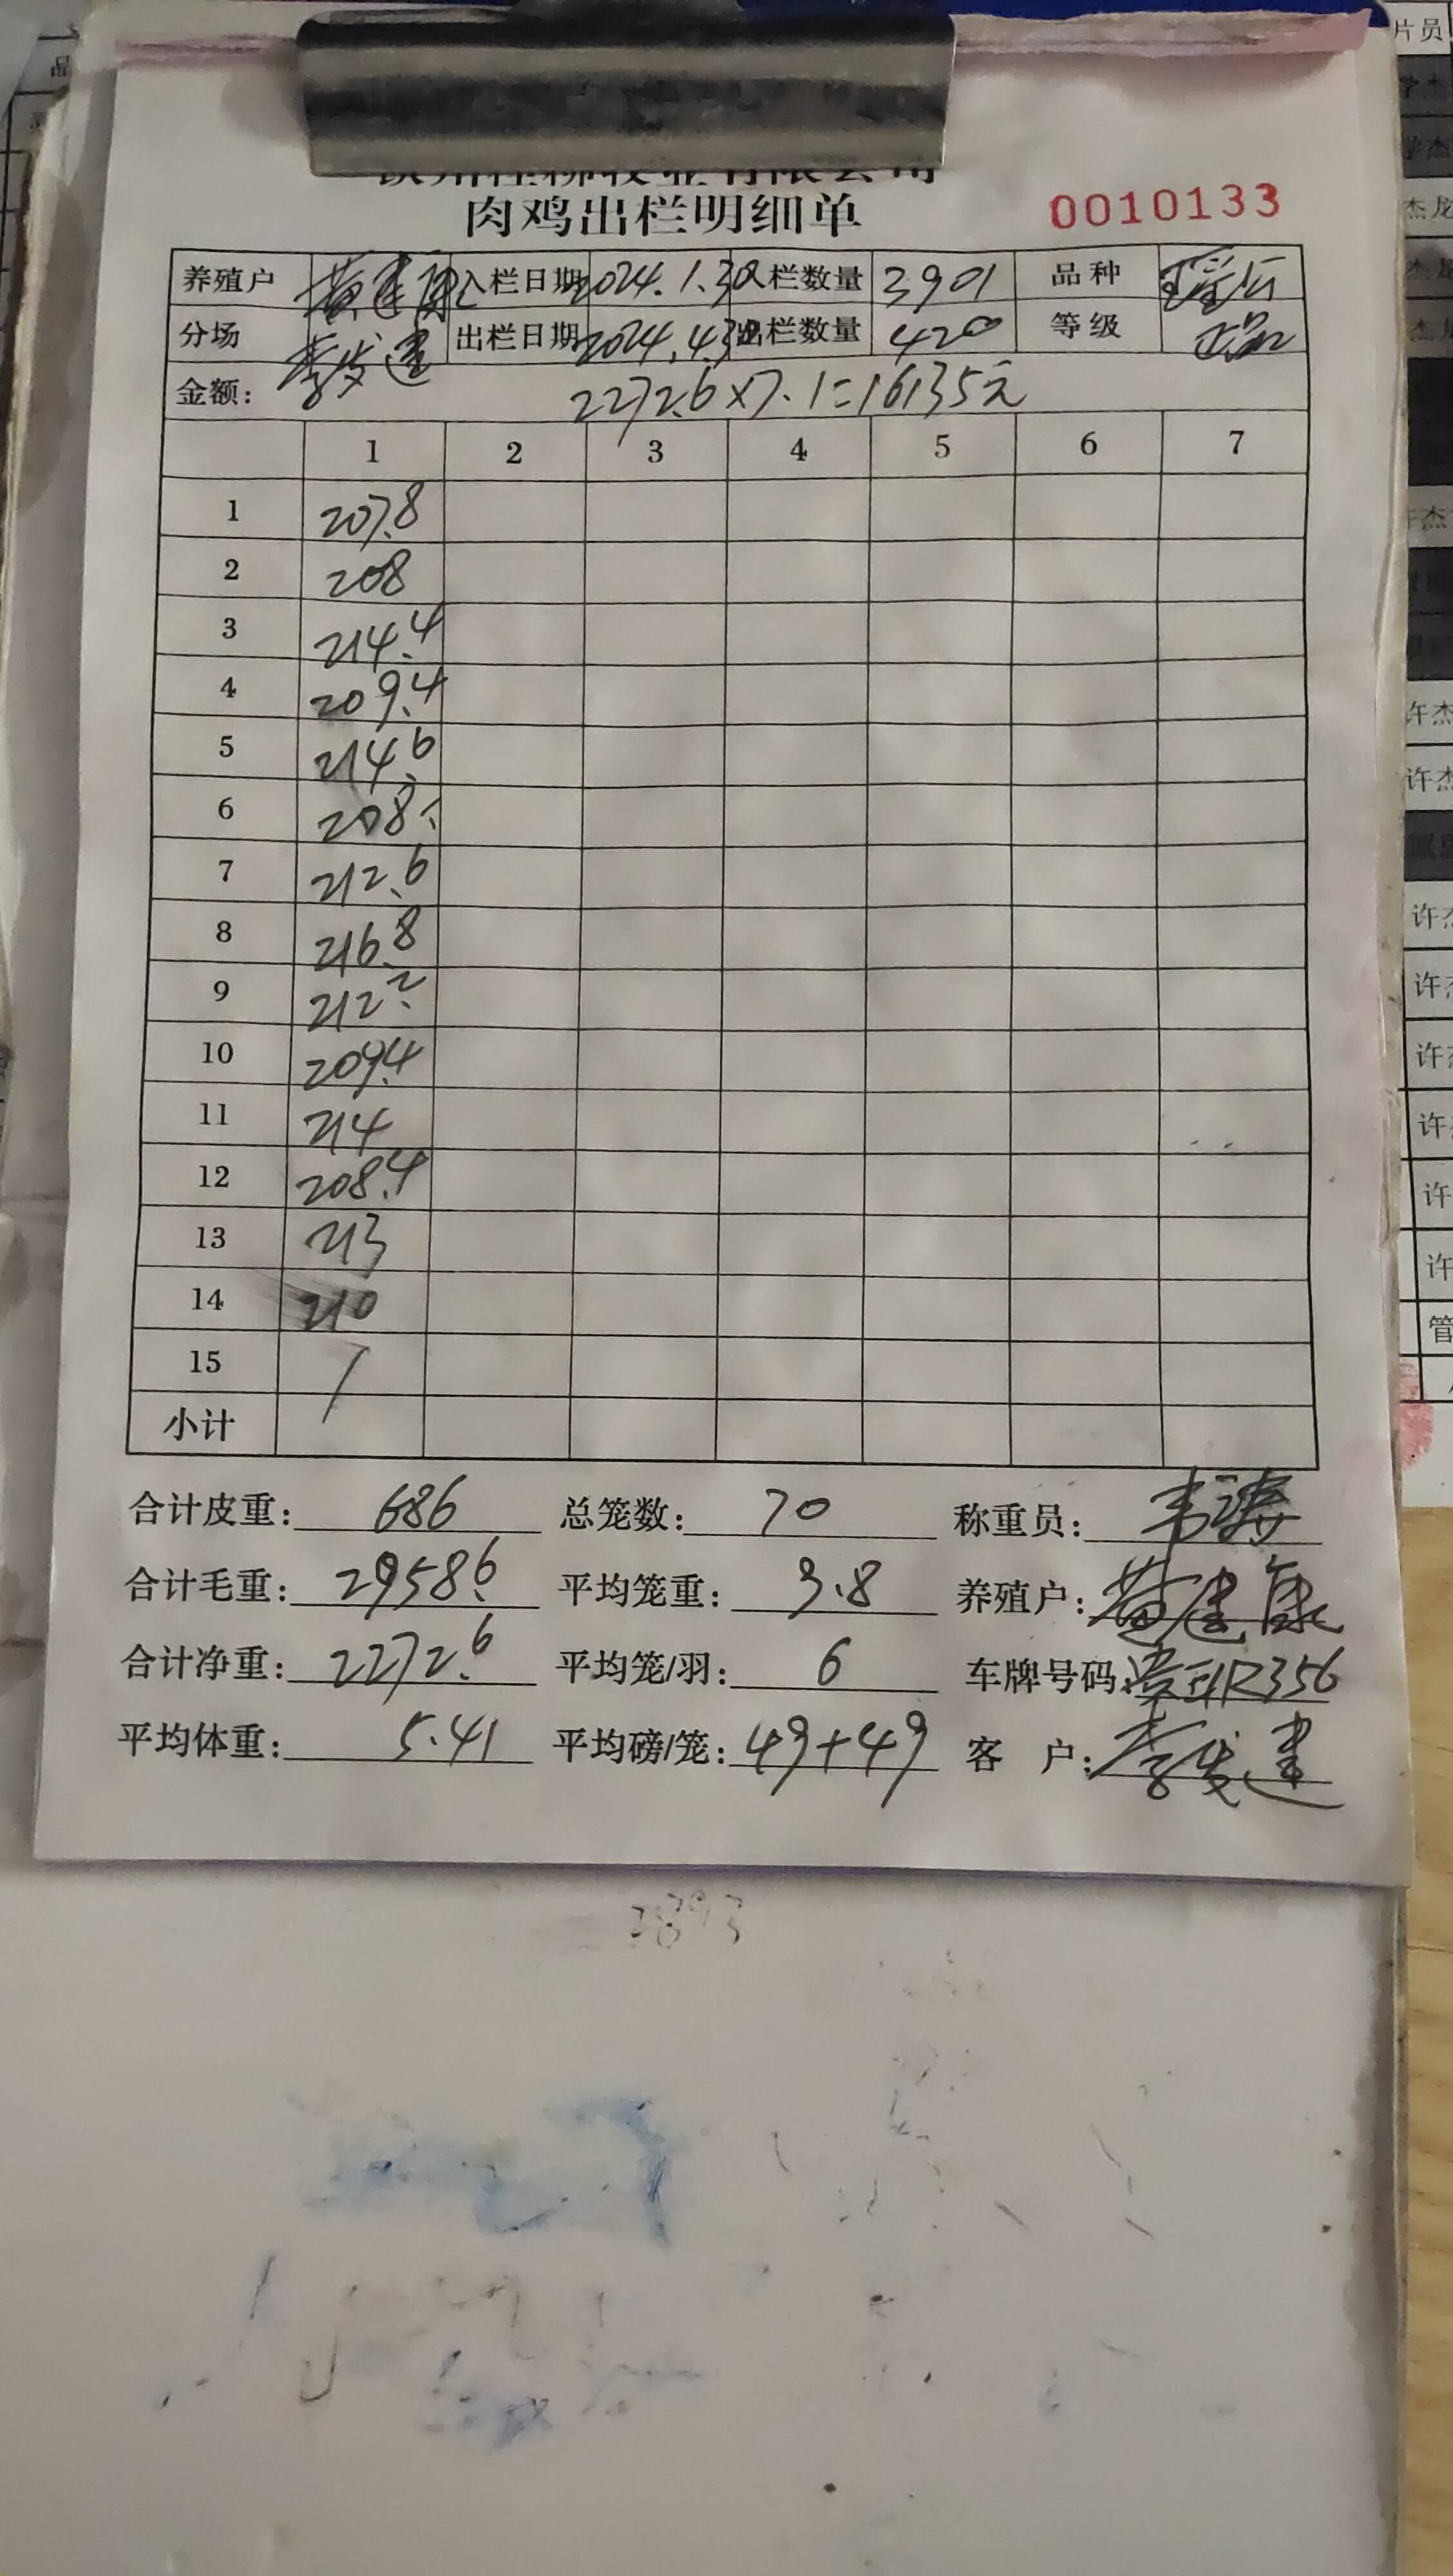 肉鸡出栏明细单 0010133
养殖户 黄建康 入栏日期 2024.1.30 入栏数量 3901 品种
分场 李发建 出栏日期 2024.4.30 出栏数量 420 等级
金额: 2272.6×7.1=16135元
1 2 3 4 5 6 7
1 207.8
2 208
3 214.4
4 209.4
5 214.6
6 208
7 212.6
8 216.8
9 212.2
10 209.4
11 214
12 208.4
13 213
14 210
15 /
小计
合计皮重: 686 总笼数: 70 称重员: 韦涛
合计毛重: 2958.6 平均笼重: 9.8 养殖户: 黄建康
合计净重: 2272.6 平均笼/羽: 6 车牌号码: R356
平均体重: 5.41 平均磅/笼: 49+49 客 户: 李发建